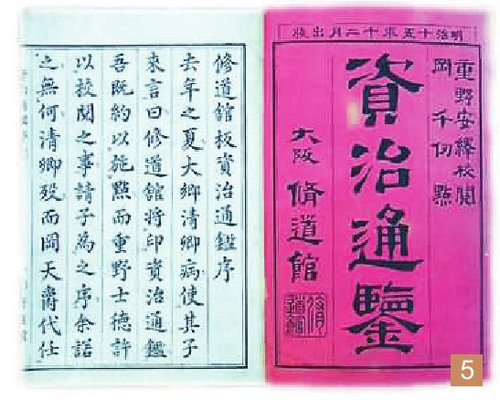 明治十五年十二月出版
重野安繹校閲
岡 千仞點
資治通鑒
大阪 修道館
修道館板資治通鑑序
去年之夏大鄉清卿病使其子
來言曰修道館將印資治通鑑
吾既約以施點而重野士德許
以校閱之事請子為之序余諾
之無何清卿歿而岡天爵代任
5